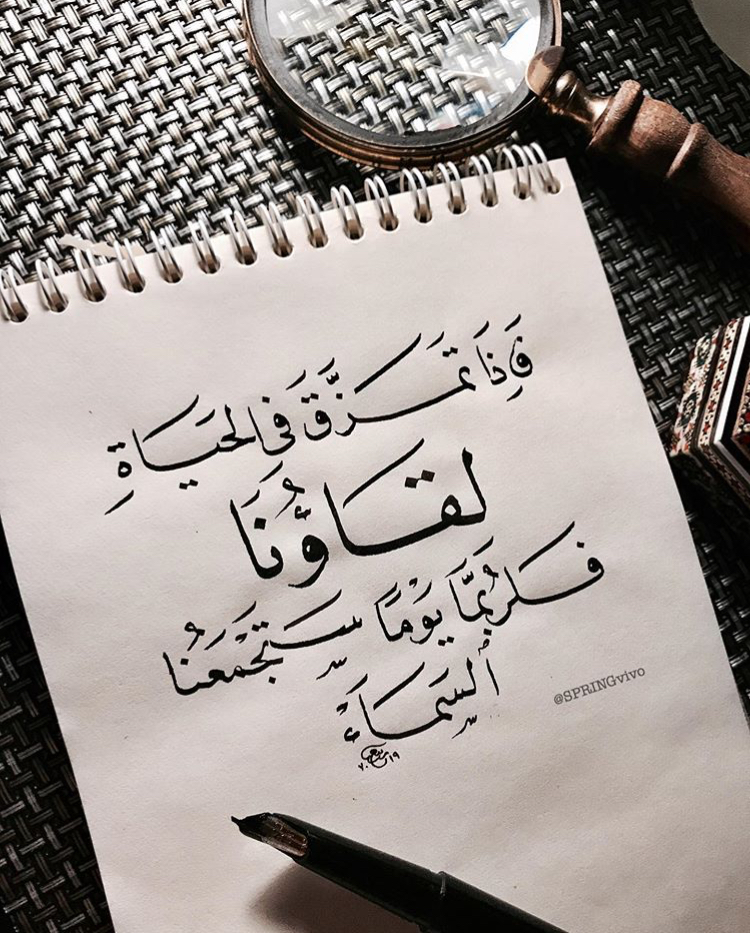 فَإِذَا تَمَزَّقَ فِي الحَيَاةِ
لقَاؤُنَا
فَلَرُبَّمَا يَوْمًا سَتَجْمَعُنَا
ٱلسَّمَاءْ
@SPRINGvivo